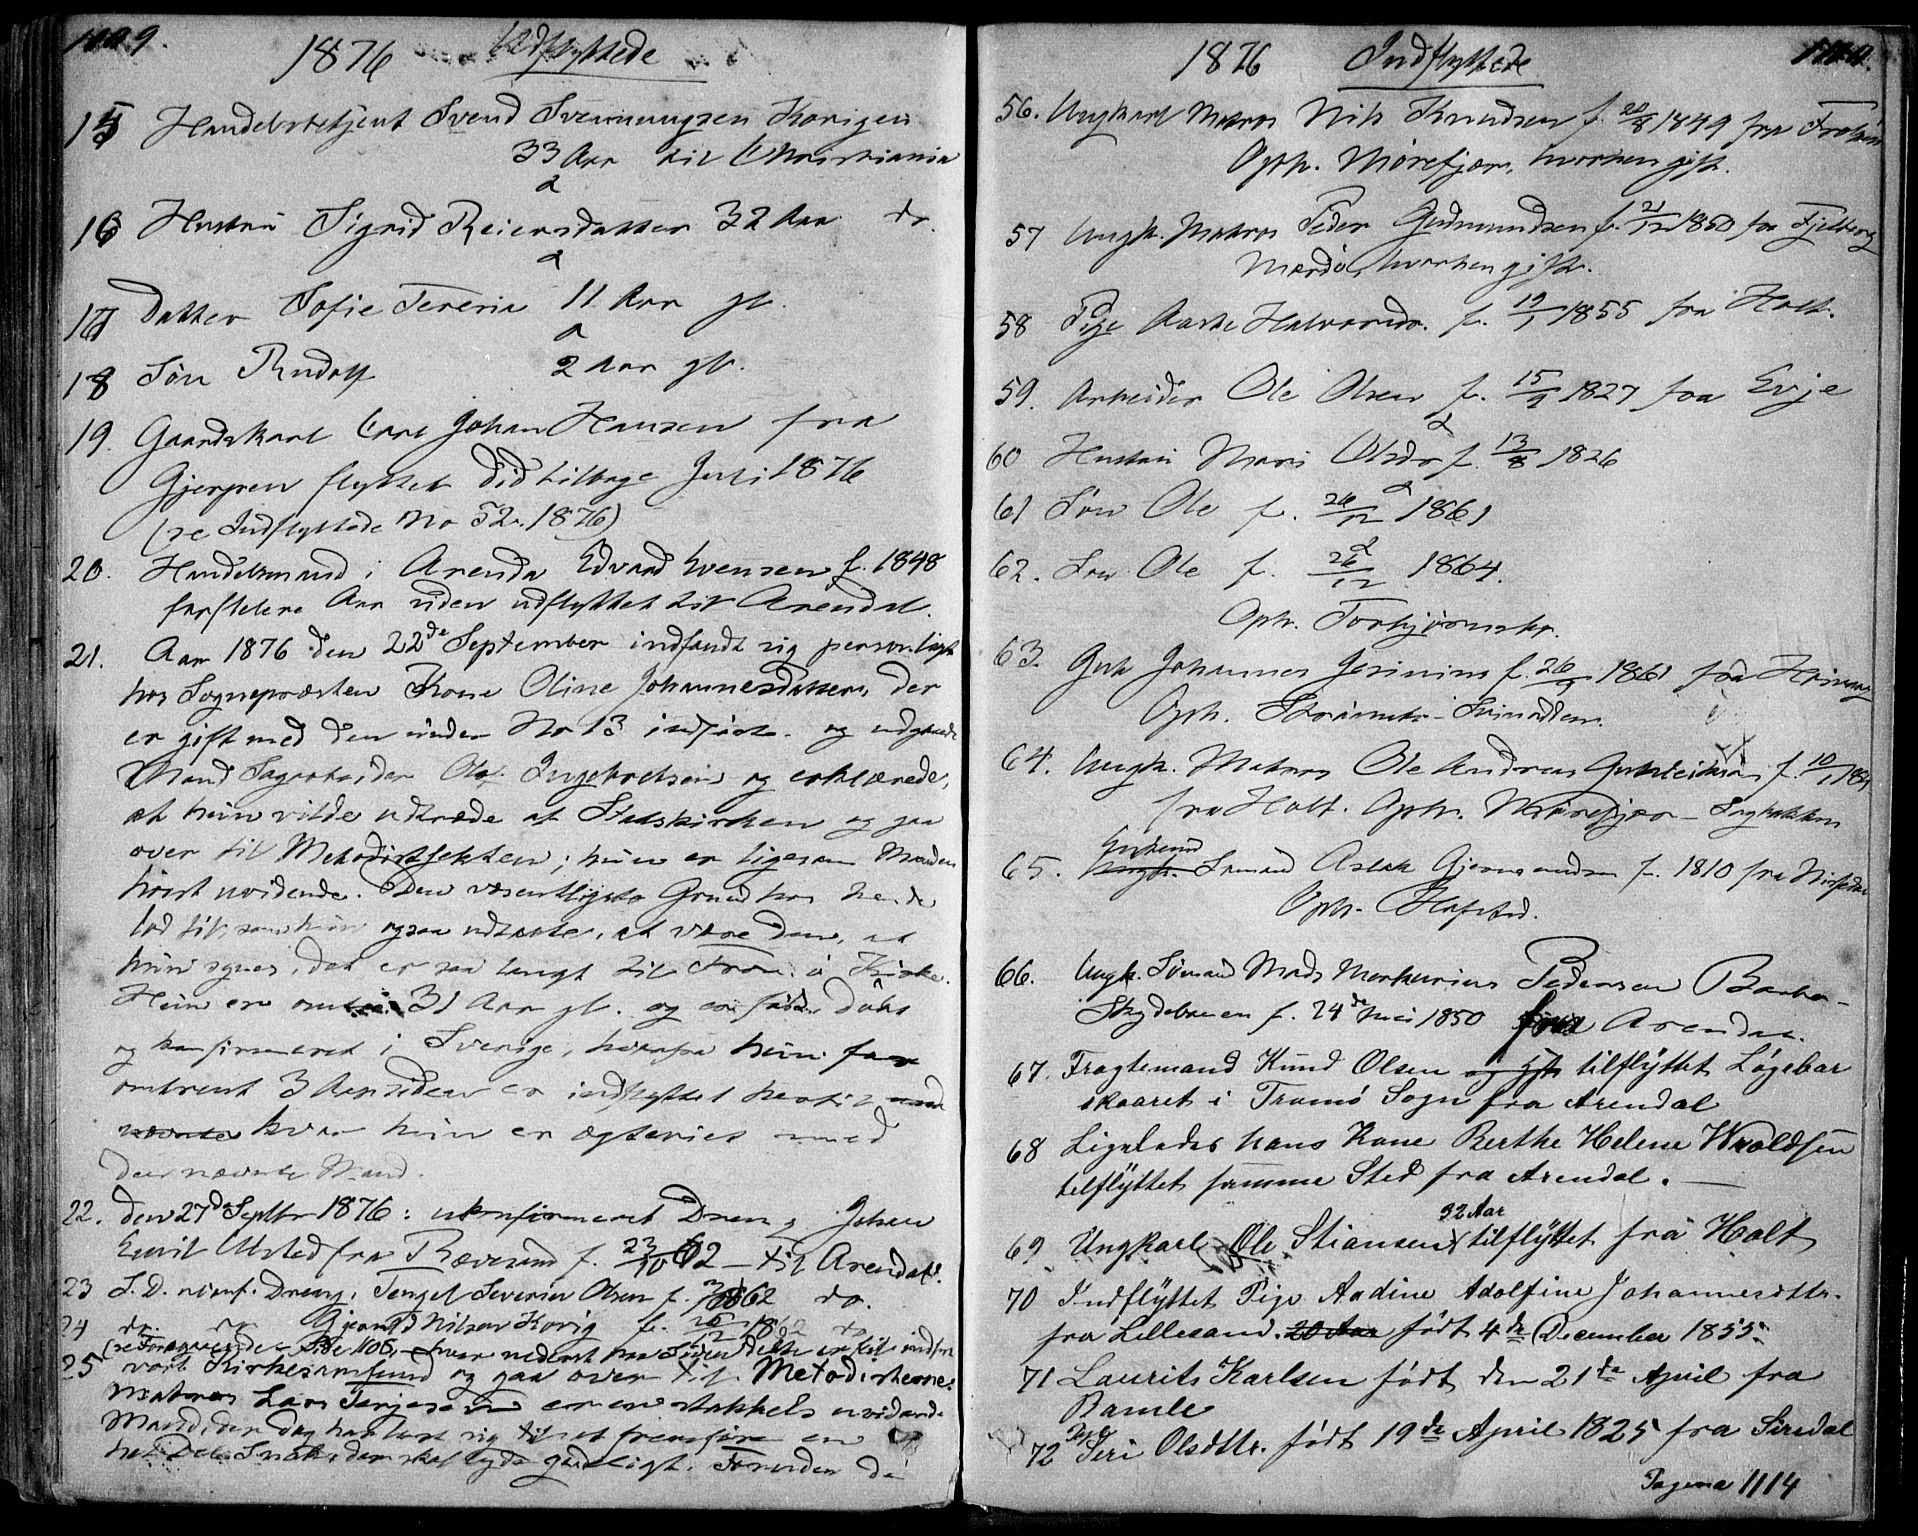 1109.
1876 Udflyttede
15 Handelsbetjent Svend Svenningsen Korigen
33 Aar til Christiania
16 Hustru Sigrid Reiersdatter 32 Aar do.
17 Datter Sofie Tereria 11 Aar gl.
18 Søn Rudolf 2 Aar gl.
19. Gaardskarl Carl Johan Hansen fra
Gjerpen flyttet did tilbage Juli 1876
(se Indflyttede No 52. 1876)
20. Handelsmand i Arendal Edvard Svensen f. 1848
for flere Aar siden udflyttet til Arendal.
21. Aar 1876 den 22de September indfandt sig personligt
hos Sognepræsten Kone Oline Johannesdatter, der
er gift med den under No 13 indførte og udgaaede
Mand Sagarbeider Ole Ingebretsen og erklærede,
at hun vilde udtræde af Statskirken og gaa
over til Methodistsekten; hun er ligesom Manden
høist uvidende. Den væsentligste Grund hos hende
lod til, som hun ogsaa udtalte, at være den, at
hun synes, det er saa langt til Tromø Kirke.
Hun er omtr. 31 Aar gl. og er født, døbt
og konfirmeret i Sverige, hvorfra hun for
omtrent 3 Aar siden er indflyttet hertil med
nævnte hvor hun er ægteviet med
den nævnte Mand.
22. den 27de Septbr 1876: ukonfirmeret Dreng Johan
Emil Ulsted fra Rævesand f. 23/10 62 – til Arendal.
23 S. D. ukonf. Dreng Tengel Severin Olsen f. 1862 do.
24 do. do. Gjermund Nilsen Korig f. 26/12 18 do
(se foregaaende Side 1106, hvor nederst paa Siden dette er indført
25 vort Kirkesamfund og gaa over til Metodisterne.
Matros Lars Terjesen er en stakkels uvidende
Mand, der dog har lært sig til at fremføre en
hel Del Snak, der skal lyde gudeligt. Foruden de
1110.
1876 Indflyttede
56. Ungkarl Matros Nils Knudsen f. 20/8 1849 fra Froland
Oph. Mørefjær, hvorhen gift.
57 Ungk. Matros Peder Gudmundsen f. 21/12 1850 fra Fjelberg
Merdø, hvorhen gift.
58 Pige Aaste Halvorsdr. f. 19/1 1855 fra Holt.
59. Arbeider Ole Olsen f. 15/9 1827 fra Evje
60 Hustru Mari Olsdr f. 13/8 1826
61 Søn Ole f. 26/12 1861
62. Søn Ole f. 26/12 1864.
Oph. Torbjørnsbr.
63. Gut Johannes Jerinius f. 26/9 1861 fra Hvinaes
Oph. Strømsbr – Svinodden.
64. Ungk. Matros Ole Andreas Gunleiksøn f. 10/1 184
fra Holt. Oph. Mørefjær – Saghakken
65. Ungk. Enkemd Sømand Aslak Gjermundsen f. 1810 fra Nissedal
Oph. Hofsted.
66. Ungk. Sømand Mads Markurius Pedersen Barbo –
Skydebanen f. 24de Mai 1850 fra Arendal.
67. Fragtemand Knud Olsen og gift tilflyttet Løgebær
skaaret i Tromø Sogn fra Arendal
68 Ligeledes hans Kone Berthe Helene Wroldsen
tilflyttet samme Sted fra Arendal. —
69 Ungkarl Ole Stiansen 32 Aar tilflyttet fra Holt
70 Indflyttet Pige Andine Adolfine Johannesdttr.
fra Lillesand. 20 Aar født 4de December 1855.
71 Laurits Karlsen født den 21de April fra
Bamle
72 Pige Siri Olsdttr. født 19de April 1825 fra Siredal
Pagina 1114